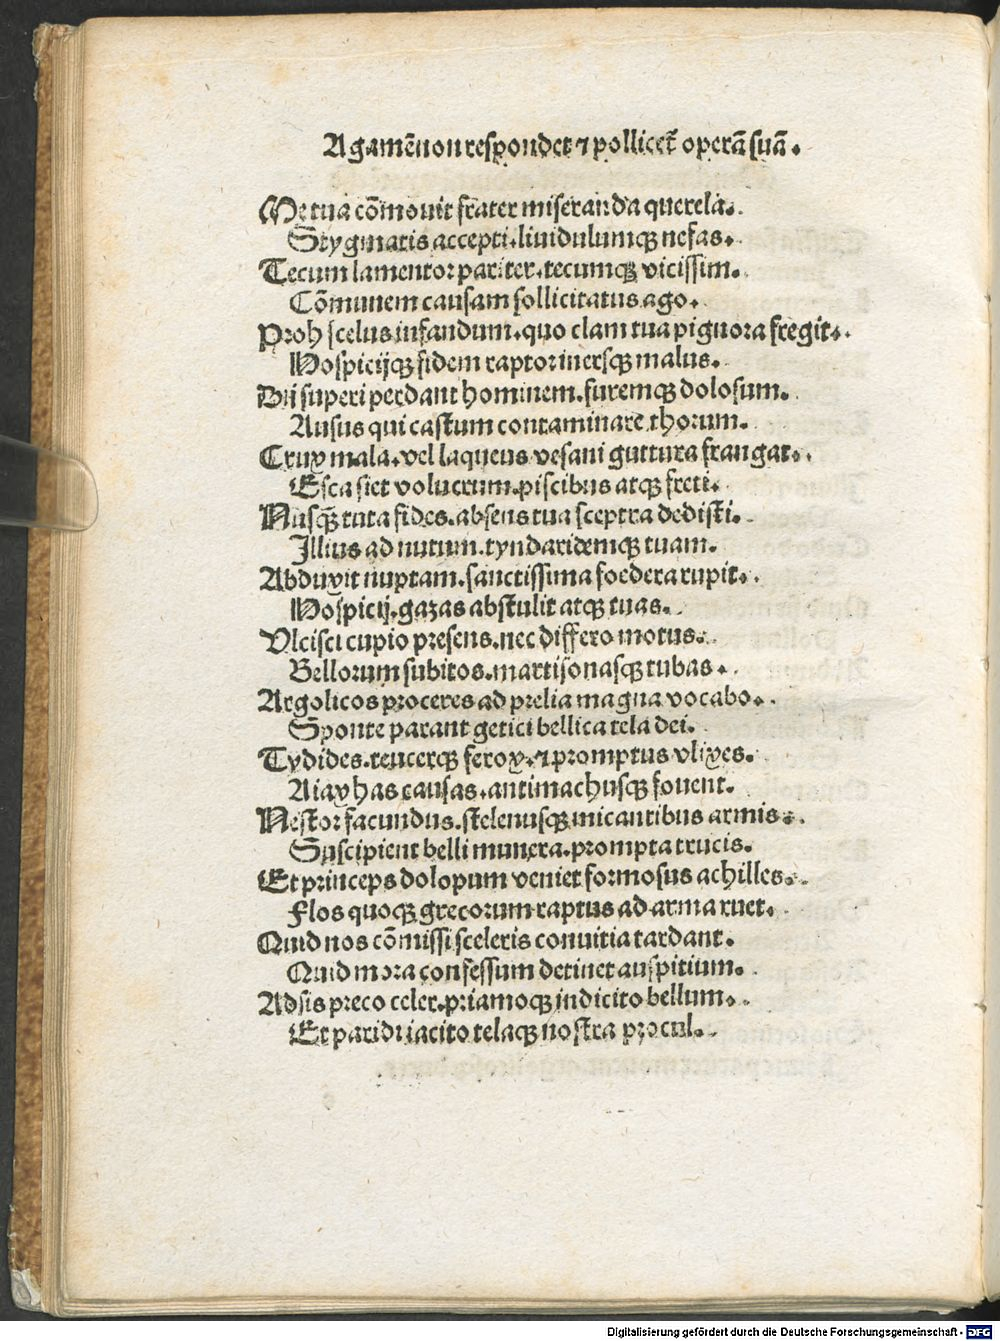 Agamēnon respondet ⁊ pollicet᷑ operā suā.
Me tua cōmouit frater miseranda querela.
Stygmatis accepti.liuidulumqꝫ nefas.
Tecum lamentor pariter.tecumqꝫ vicissim.
Cōmunem causam sollicitatus ago.
Proh scelus infandum.quo clam tua pignora fregit.
Hospicijqꝫ fidem raptor inersqꝫ malus.
Dij superi perdant hominem.furemqꝫ dolosum.
Ausus qui castum contaminare thorum.
Crux mala.vel laqueus vesani guttura frangat.
Esca siet volucrum.piscibus atqꝫ freti.
Nusqꝫ̄ tuta fides.absens tua sceptra dedisti.
Illius ad nutum.tyndaridemqꝫ tuam.
Abduxit nuptam.sanctissima foedera rupit.
Hospicij.gazas abstulit atqꝫ tuas.
Vlcisci cupio presens.nec differo motus.
Bellorum subitos.martisonasqꝫ tubas.
Argolicos proceres ad prelia magna vocabo.
Sponte parant getici bellica tela dei.
Tydides.teucerqꝫ ferox.⁊ promptus vlixes.
Aiax has causas.antimachusqꝫ fouent.
Nestor facundus.stelenusqꝫ micantibus armis.
Suscipient belli munera.prompta trucis.
Et princeps dolopum veniet formosus achilles.
Flos quoqꝫ grecorum raptus ad arma ruet.
Quid nos cōmissi sceleris conuitia tardant.
Quid mora confessum detinet auspitium.
Adsis preco celer.priamoqꝫ indicito bellum.
Et paridi iacito telaqꝫ nostra procul.
Digitalisierung gefördert durch die Deutsche Forschungsgemeinschaft - DFG